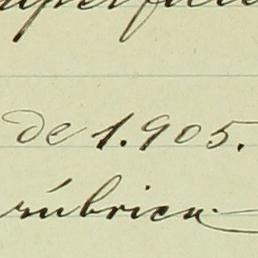 de 1.905.
rúbrica